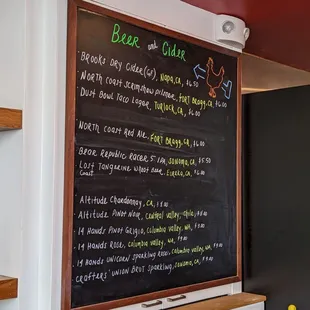 Beer and Cider
Brooks Dry Cider (GF), Napa, CA, $6.50
North Coast Scrimshaw Pilsner, Fort Bragg, CA, $6.00
Dust Bowl Taco Lager, Turlock, CA, $6.00
North Coast Red Ale, Fort Bragg, CA, $6.00
Bear Republic Racer 5 IPA, Sonoma, CA, $5.50
Lost Coast Tangerine Wheat Beer, Eureka, CA, $6.00
Altitude Chardonnay, CA,
Altitude Pinot Noir, Central Valley, Chile,
14 Hands Pinot Grigio, Columbia Valley, WA,
14 Hands Rose, Columbia Valley, WA,
14 Hands Unicorn Sparkling Rose, Columbia Valley, WA,
Crafters' Union Brut Sparkling, Sonoma, CA,